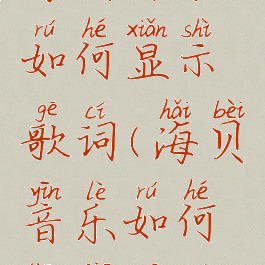 rú hé xiǎn shì
如何显示
gē cí hǎi bèi
歌词(海贝
yīn lè rú hé
音乐如何